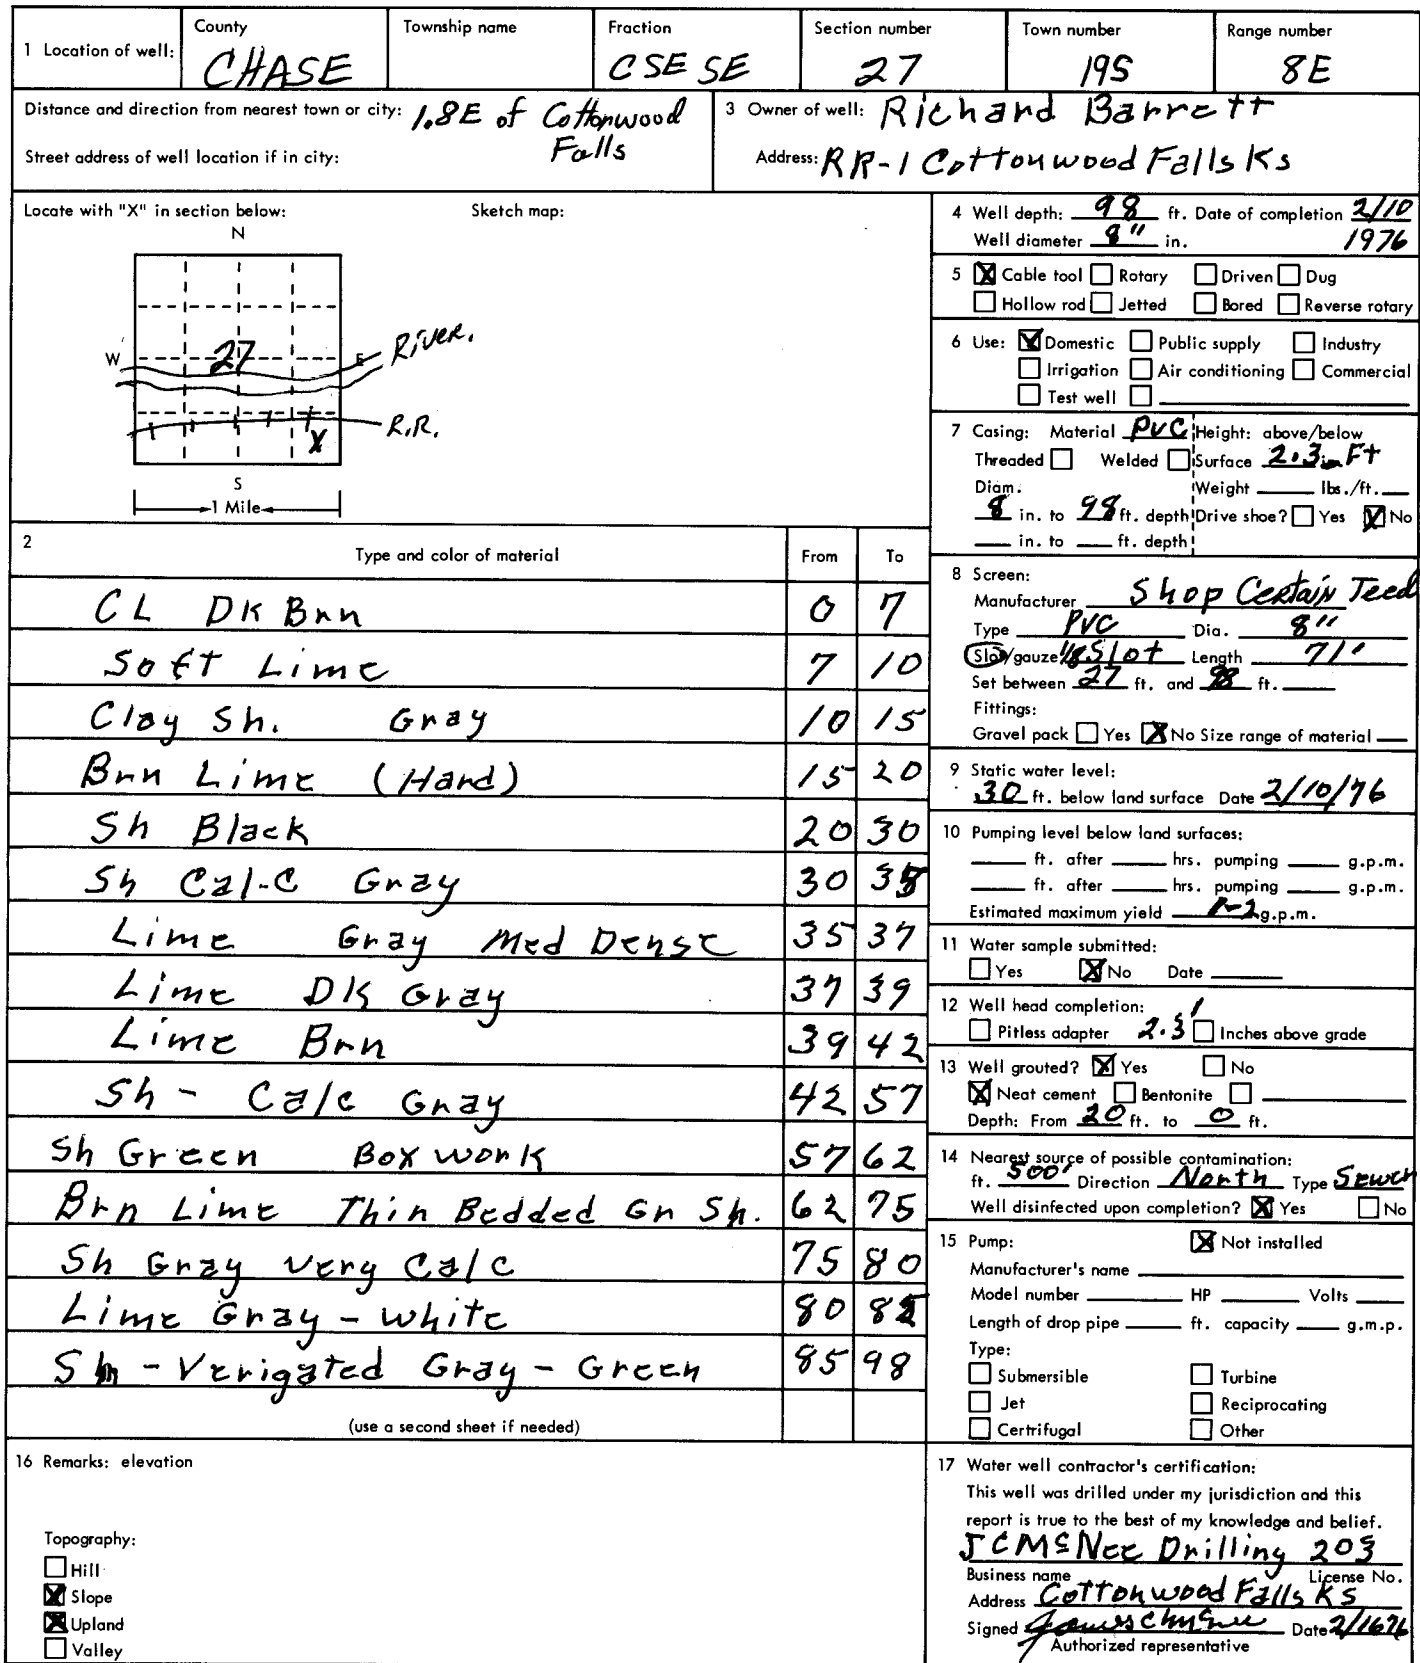 1 Location of well:
County
CHASE
Township name
Fraction
C SE SE
Section number
27
Town number
19S
Range number
8E
Distance and direction from nearest town or city: 1.8E of Cottonwood
Falls
Street address of well location if in city:
3 Owner of well: Richard Barrett
Address: RR-1 Cottonwood Falls Ks
Locate with "X" in section below:
Sketch map:
N
W
27
E
River.
R.R.
X
S
1 Mile
2
Type and color of material
From
To
CL DK Brn 0 7
Soft Lime 7 10
Clay Sh. Gray 10 15
Brn Lime (Hard) 15 20
Sh Black 20 30
Sh Cal-C Gray 30 35
Lime Gray Med Dense 35 37
Lime DK Gray 37 39
Lime Brn 39 42
Sh - Calc Gray 42 57
Sh Green Box work 57 62
Brn Lime Thin Bedded Gn Sh. 62 75
Sh Gray Very Calc 75 80
Lime Gray - White 80 85
Sh - Verigated Gray - Green 85 98
(use a second sheet if needed)
16 Remarks: elevation
Topography:
Hill
X Slope
X Upland
Valley
4 Well depth: 98 ft. Date of completion 2/10
Well diameter 8" in. 1976
5 X Cable tool Rotary Driven Dug
Hollow rod Jetted Bored Reverse rotary
6 Use: X Domestic Public supply Industry
Irrigation Air conditioning Commercial
Test well
7 Casing: Material PVC Height: above/below
Threaded Welded Surface 2.3 Ft
Diam. Weight lbs./ft.
8 in. to 98 ft. depth Drive shoe? Yes X No
in. to ft. depth
8 Screen:
Manufacturer Shop Certain Teed
Type PVC Dia. 8"
Slot/gauze 1/8 Slot Length 71'
Set between 27 ft. and 98 ft.
Fittings:
Gravel pack Yes X No Size range of material
9 Static water level:
30 ft. below land surface Date 2/10/76
10 Pumping level below land surfaces:
ft. after hrs. pumping g.p.m.
ft. after hrs. pumping g.p.m.
Estimated maximum yield 1-2 g.p.m.
11 Water sample submitted:
Yes X No Date
12 Well head completion:
Pitless adapter 2.3' Inches above grade
13 Well grouted? X Yes No
X Neat cement Bentonite
Depth: From 20 ft. to 0 ft.
14 Nearest source of possible contamination:
ft. 500' Direction North Type Sewer
Well disinfected upon completion? X Yes No
15 Pump: X Not installed
Manufacturer's name
Model number HP Volts
Length of drop pipe ft. capacity g.m.p.
Type:
Submersible Turbine
Jet Reciprocating
Certrifugal Other
17 Water well contractor's certification:
This well was drilled under my jurisdiction and this
report is true to the best of my knowledge and belief.
J C McNee Drilling 203
Business name License No.
Address Cottonwood Falls Ks
Signed James C McNee Date 2/1676
Authorized representative